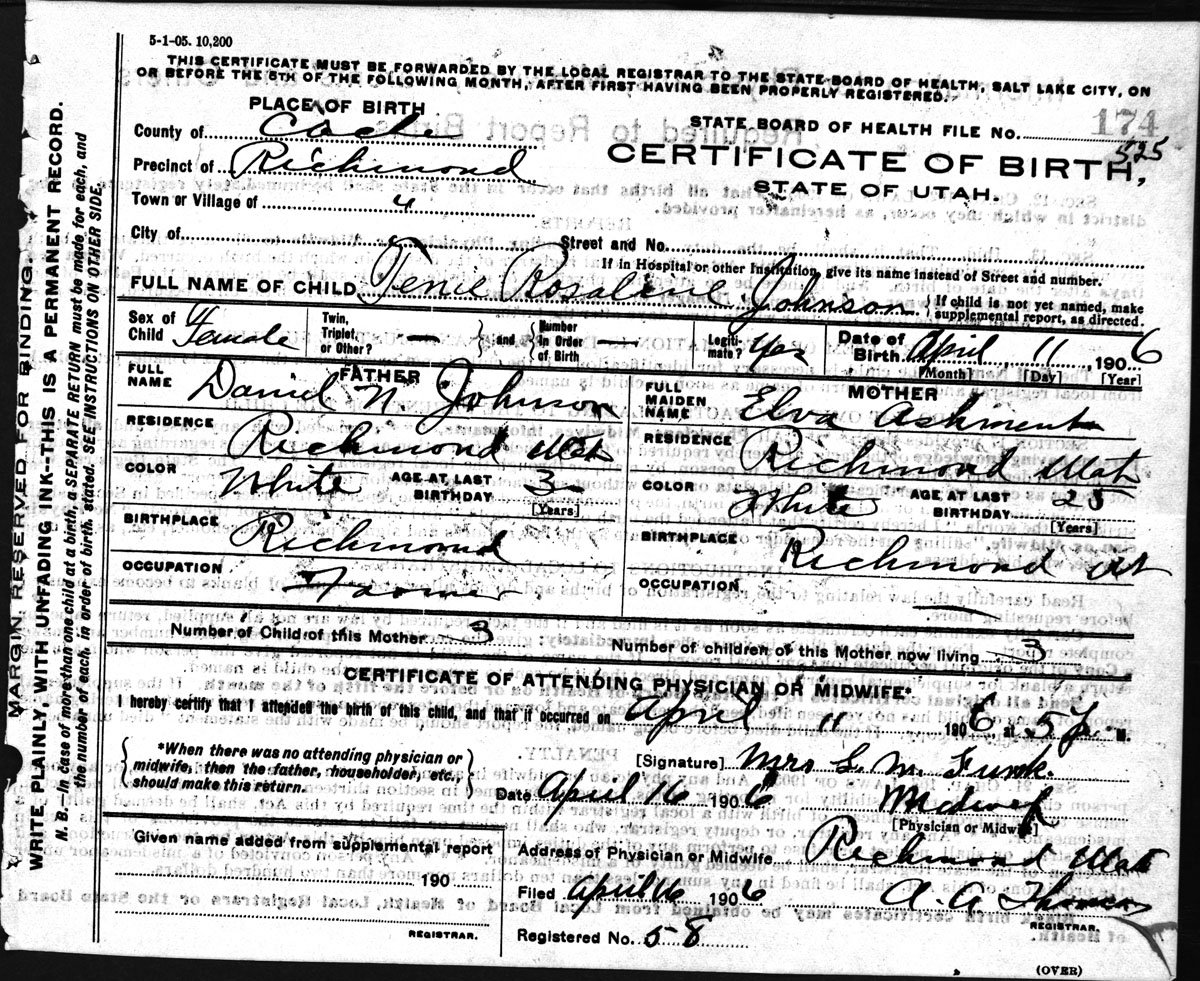 5-1-05. 10,200
THIS CERTIFICATE MUST BE FORWARDED BY THE LOCAL REGISTRAR TO THE STATE BOARD OF HEALTH, SALT LAKE CITY, ON
OR BEFORE THE 5TH OF THE FOLLOWING MONTH, AFTER FIRST HAVING BEEN PROPERLY REGISTERED.
PLACE OF BIRTH
County of Cache
Precinct of Richmond
Town or Village of "
City of
STATE BOARD OF HEALTH FILE No. 174
525
CERTIFICATE OF BIRTH,
STATE OF UTAH.
Street and No.
If in Hospital or other Institution, give its name instead of Street and number.
FULL NAME OF CHILD Tenie Rosaline Johnson
If child is not yet named, make
supplemental report, as directed.
Sex of Child Female
Twin, Triplet, or Other? —
and
Number in Order of Birth —
Legitimate? Yes
Date of Birth April 11, 1906
[Month] [Day] [Year]
FATHER
FULL NAME Daniel N. Johnson
RESIDENCE Richmond Utah
COLOR White
AGE AT LAST BIRTHDAY
[Years]
BIRTHPLACE Richmond
OCCUPATION Farmer
MOTHER
FULL MAIDEN NAME Elva Ashment
RESIDENCE Richmond Utah
COLOR White
AGE AT LAST BIRTHDAY 25
[Years]
BIRTHPLACE Richmond Ut
OCCUPATION —
Number of Child of this Mother 3
Number of children of this Mother now living 3
CERTIFICATE OF ATTENDING PHYSICIAN OR MIDWIFE*
I hereby certify that I attended the birth of this child, and that it occurred on April 11 1906, at 5 P. M.
*When there was no attending physician or
midwife, then the father, householder, etc.,
should make this return.
[Signature] Mrs S. M. Funk.
Date April 16 1906
Midwif
[Physician or Midwife]
Given name added from supplemental report
190
REGISTRAR.
Address of Physician or Midwife Richmond Utah
Filed April 16 1906
A. A. Thomas
REGISTRAR.
Registered No. 58
(OVER)
MARGIN RESERVED FOR BINDING.
WRITE PLAINLY, WITH UNFADING INK--THIS IS A PERMANENT RECORD.
N. B.—In case of more than one child at a birth, a SEPARATE RETURN must be made for each, and
the number of each, in order of birth, stated. SEE INSTRUCTIONS ON OTHER SIDE.